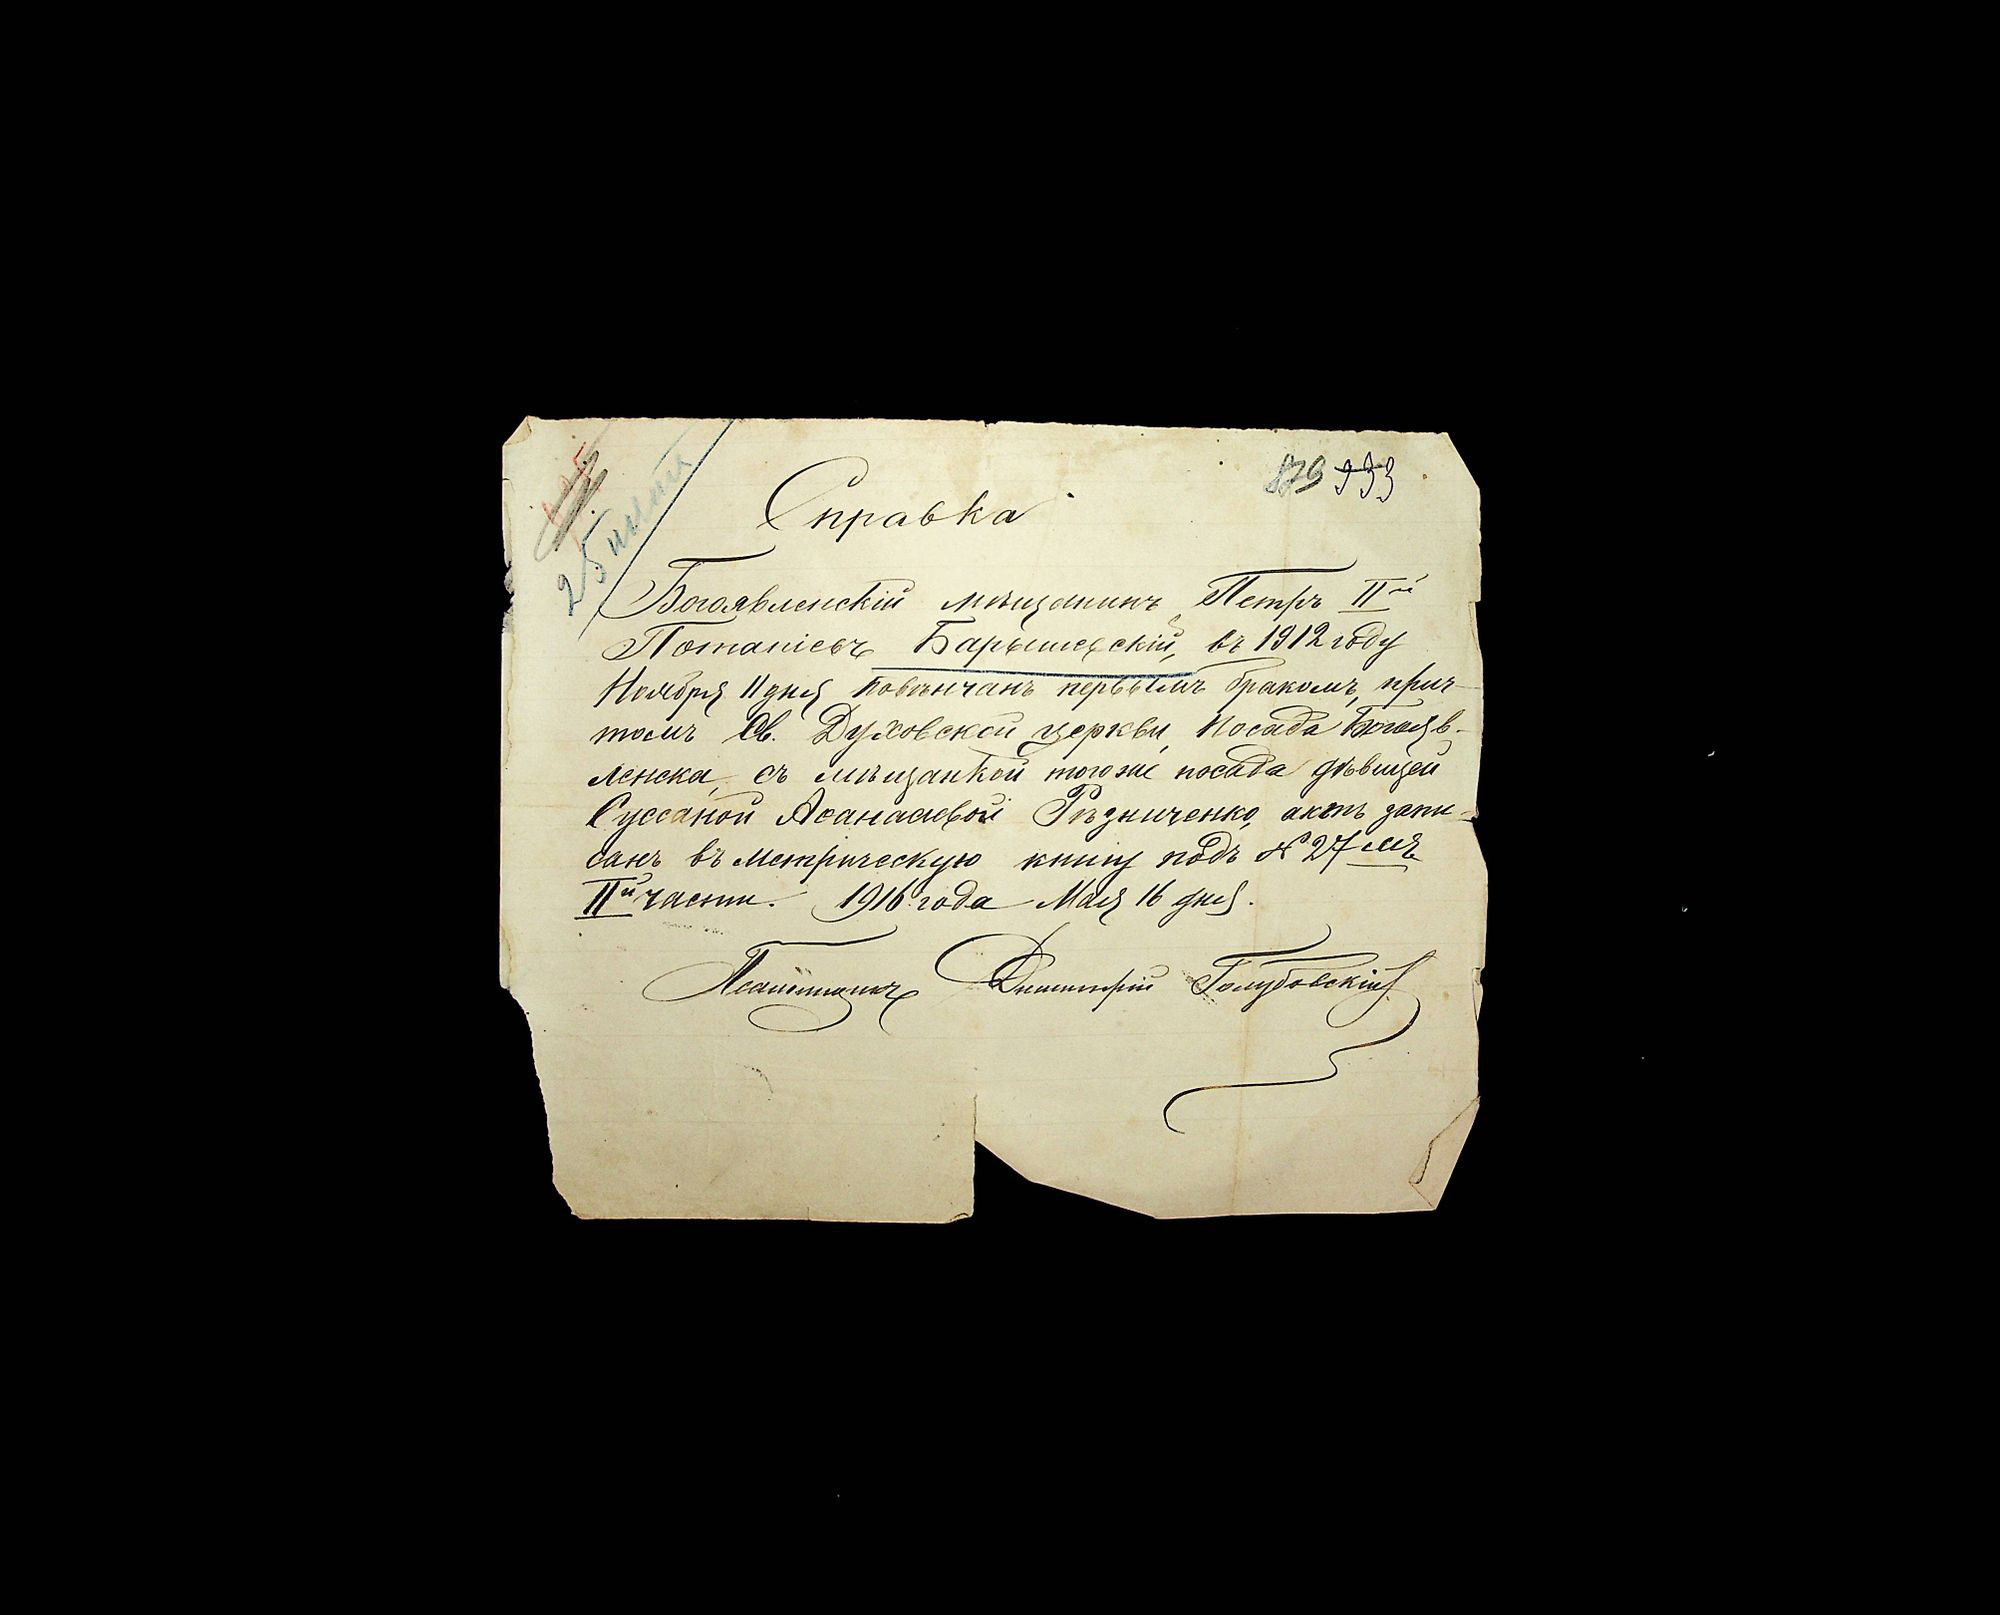 25 июня
879 933
Справка
Богоявленскій мѣщанинъ Петръ IIй
Потапіевъ Барышевскій, въ 1912 году
Ноября 11 дня повѣнчанъ первымъ бракомъ, прич-
томъ Св. Духовской церкви, Посада Богояв-
ленска, съ мѣщанкой того же посада дѣвицей
Суссаной Аѳанасіевой Рѣзниченко, актъ запи-
санъ въ метрическую книгу подъ № 27 мъ
IIй части. 1916 года Мая 16 дня.
Псаломщикъ Димитрій Голубовскій